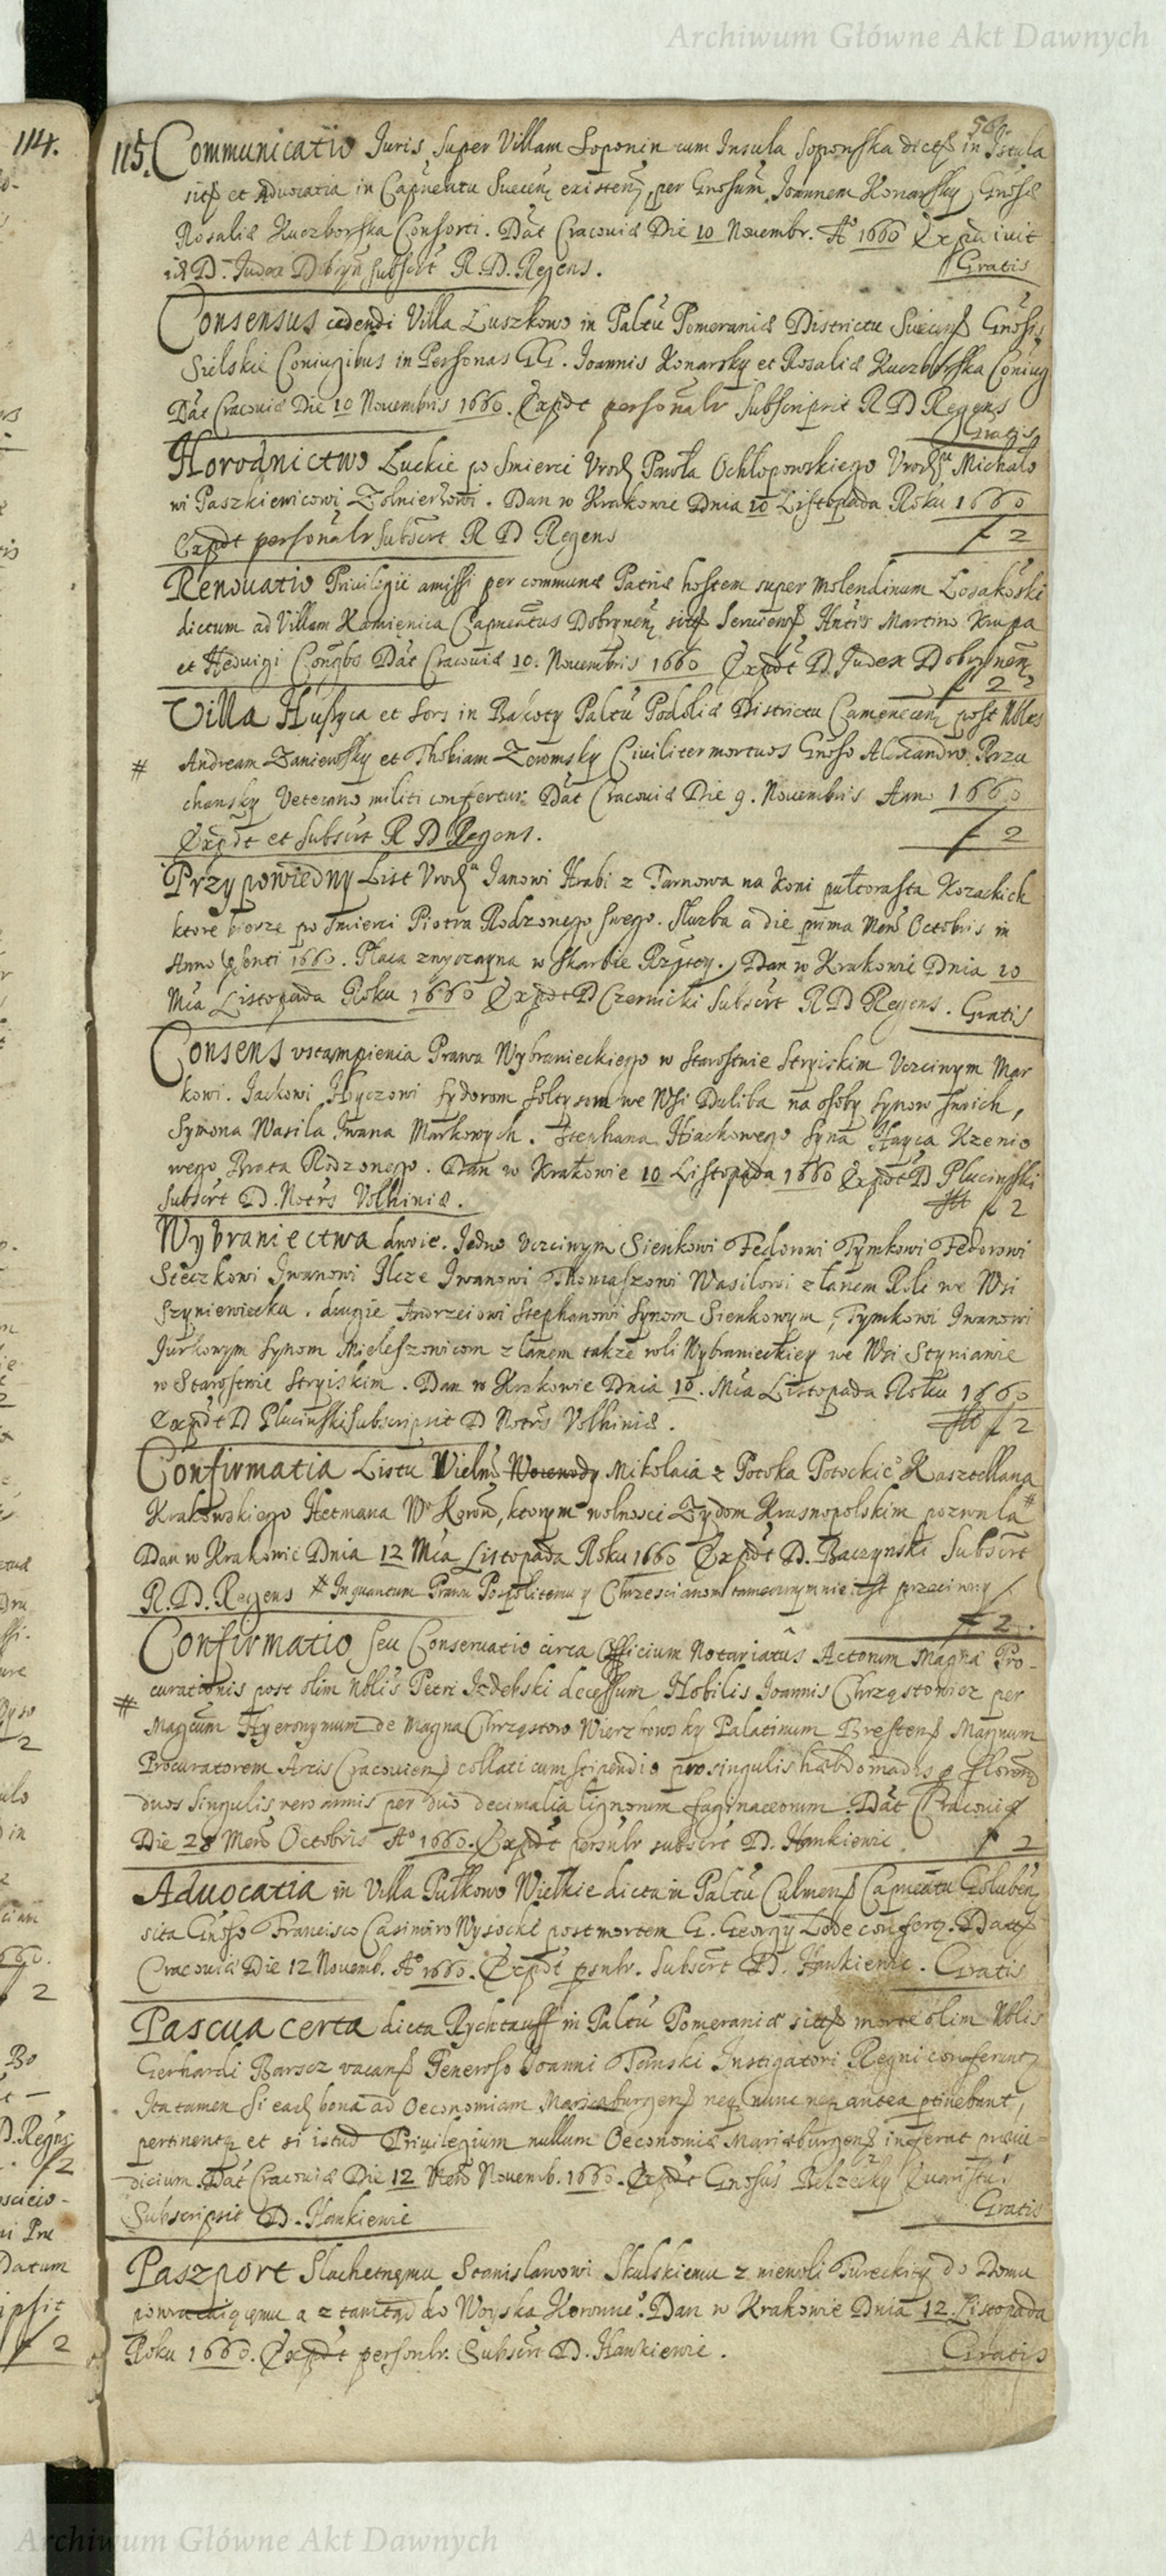 Archiwum Główne Akt Dawnych
114.
56.
115. Communicatio Juris super Villam Soponin cum Insula Soponska dicta in Istula
sita et Advocatia in Capneatu Suecen existen per Gnosum Joannem Konarsky Gnosæ
Rosaliæ Kuczborska Consorti. Dat Cracoviæ Die 10 Novembr. Ao 1660 Expedivit
D. Judex Dobryn subscrt R. D. Regens.
Gratis
Consensus cedendi Villa Luszkowo in Paltu Pomeraniæ Districtu Suecens Gnosis
Sielskie Coniugibus in Personas GG. Joannis Konarsky et Rosaliæ Kuczborska Coniug
Dat Cracoviæ Die 10 Novembris 1660. Expdt personalr Subscripsit R D Regens
Gratis
Horodnictwo Luckie po Smierci Urodz Pawła Ochlopowskiego Urodz Michało
wi Paszkiewicowi Zolnierzowi. Dan w Krakowie Dnia 10 Listopada Roku 1660
Expdt personalr Subscrt R D Regens f 2
Renovatio Privilegii amissi per communæ Patriæ hostem super Molendinum Losakoski
dictum ad Villam Kamienica Capneatus Dobrynen Martino Krupa
et Hedvigi Congbs Dat Cracoviæ 10. Novembris 1660 Expdt D. Judex Dobrynen
f 2
Villa Hussyca et Sors in Bakoty Paltu Podoliæ Districtu Camenecen post Nbles
# Andream Zaniewsky et Thobiam Zeromsky Civiliter mortuos Gnoso Alexandro Przu
chansky Veterano militi confertur. Dat Cracoviæ Die 9. Novembris Ann 1660
Expdt et Subscrt R D Regens. f 2
Przypowiedny List Urodz Janowi Hrabi z Tarnowa na koni pułtorasta Kozackich
ktore bierze po Smierci Piotra Rodzonego swego. Służba a die prima Mens Octobris in
Anno 1660. Płaca zwyczayna w Skarbie Rzptey. Dan w Krakowie Dnia 10
Mca Listopada Roku 1660 Expdt D Czernicki Subscrt R D Regens. Gratis
Consens vstąmpienia Prawa Wybranieckiego w Starostwie Stryiskim Uczciwym Mar
kowi. Jackowi Hryczowi Sydorom Soltysom we Wsi Duliba na osoby Synow swoich,
Symona Wasila Iwana Markowych. Stephana Hiackowego Syna
wego Brata Rodzonego. Dan w Krakowie 10 Listopada 1660 Expdt D Plucinski
Subscrt D. Notrs Volhiniæ. f 2
Wybraniectwa dwoie. Jedno Uczciwym Sienkowi Fedorowi Tymkowi Fedorowi
Steczkowi Iwanowi Ilcze Iwanowi Thomaszowi Wasilowi z łanem Roli we Wsi
Szyniewiecku. drugie Andrzeiowi Stephanowi Synom Sienkowym, Tymkowi Iwanowi
Jurkowym Synom Mieleszowicom z łanem takze roli Wybranieckiey we Wsi Stynianie
w Starostwie Stryiskim. Dan w Krakowie Dnia 10. Mca Listopada Roku 1660
Expdt D Plucinski Subscripsit D Notrs Volhiniæ. f 2
Confirmatia Listu Wielm Woiewody Mikolaia z Potoka Potockie Kasztellana
Krakowskiego Hetmana Wo Koron, ktorym wolnosci Zydom Krasnopolskim pozwala #
Dan w Krakowie Dnia 12 Mca Listopada Roku 1660 Expdt D. Baczynski Subscrt
R. D. Regens # Inquantum Prawu Pospolitemu y Chrzescianom tamecznym nie iest przeciwny
f 2.
Confirmatio seu Conservatio circa Officium Notariatus Actorum Magnæ Pro-
# curationis post olim Nblis Petri Izdebski decessum Nobilis Joannis Chrząstowicz per
Magcum Hyeronymum de Magna Chrząstow Wierzbowsky Palatinum Brestens Magnum
Procuratorem Arcis Cracoviens collati cum stipendio pro singulis habdomadis florenos
duos singulis vero annis per duo decimalia lignorum faginaceorum. Dat Cracoviæ
Die 28 Mens Octobris Ao 1660. Expdt persnlr subscrt D. Hankiewic. f 2
Advocatia in Villa Pułkowo Wielkie dicta in Paltu Culmens Capneatu Goluben
sita Gnoso Francisco Casimiro Wysocki post mortem G. Georgy Lode confertr. Datt
Cracoviæ Die 12 Novemb. Ao 1660. Expdt psnlr. Subscrt D. Hankiewic. Gratis
Pascua certa dicta Rychtauff in Paltu Pomeraniæ sitta morte olim Nblis
Gerhardi Barscz vacans Generoso Joanni Tanski Instigatori Regni conferunt
Ita tamen Si ead bona ad Oeconomiam Mariæburgens neq nunc neq antea ptinebant,
pertinentq et si istud Privilegium nullum Oeconomiæ Mariæburgens inferat præiu-
dicium. Dat Cracoviæ Die 12 Mens Novemb. 1660. Expdt Gnosus Belzecky
Subscripsit D. Hankiewic Gratis
Paszport Slachetnemu Stanislawowi Skulskiemu z niewoli Tureckiey do Domu
powracaiącemu a z tamtąd do Woyska Koronne. Dan w Krakowie Dnia 12. Listopada
Roku 1660. Expdt persnlr. Subscrt D. Hankiewic. Gratis
Archiwum Główne Akt Dawnych